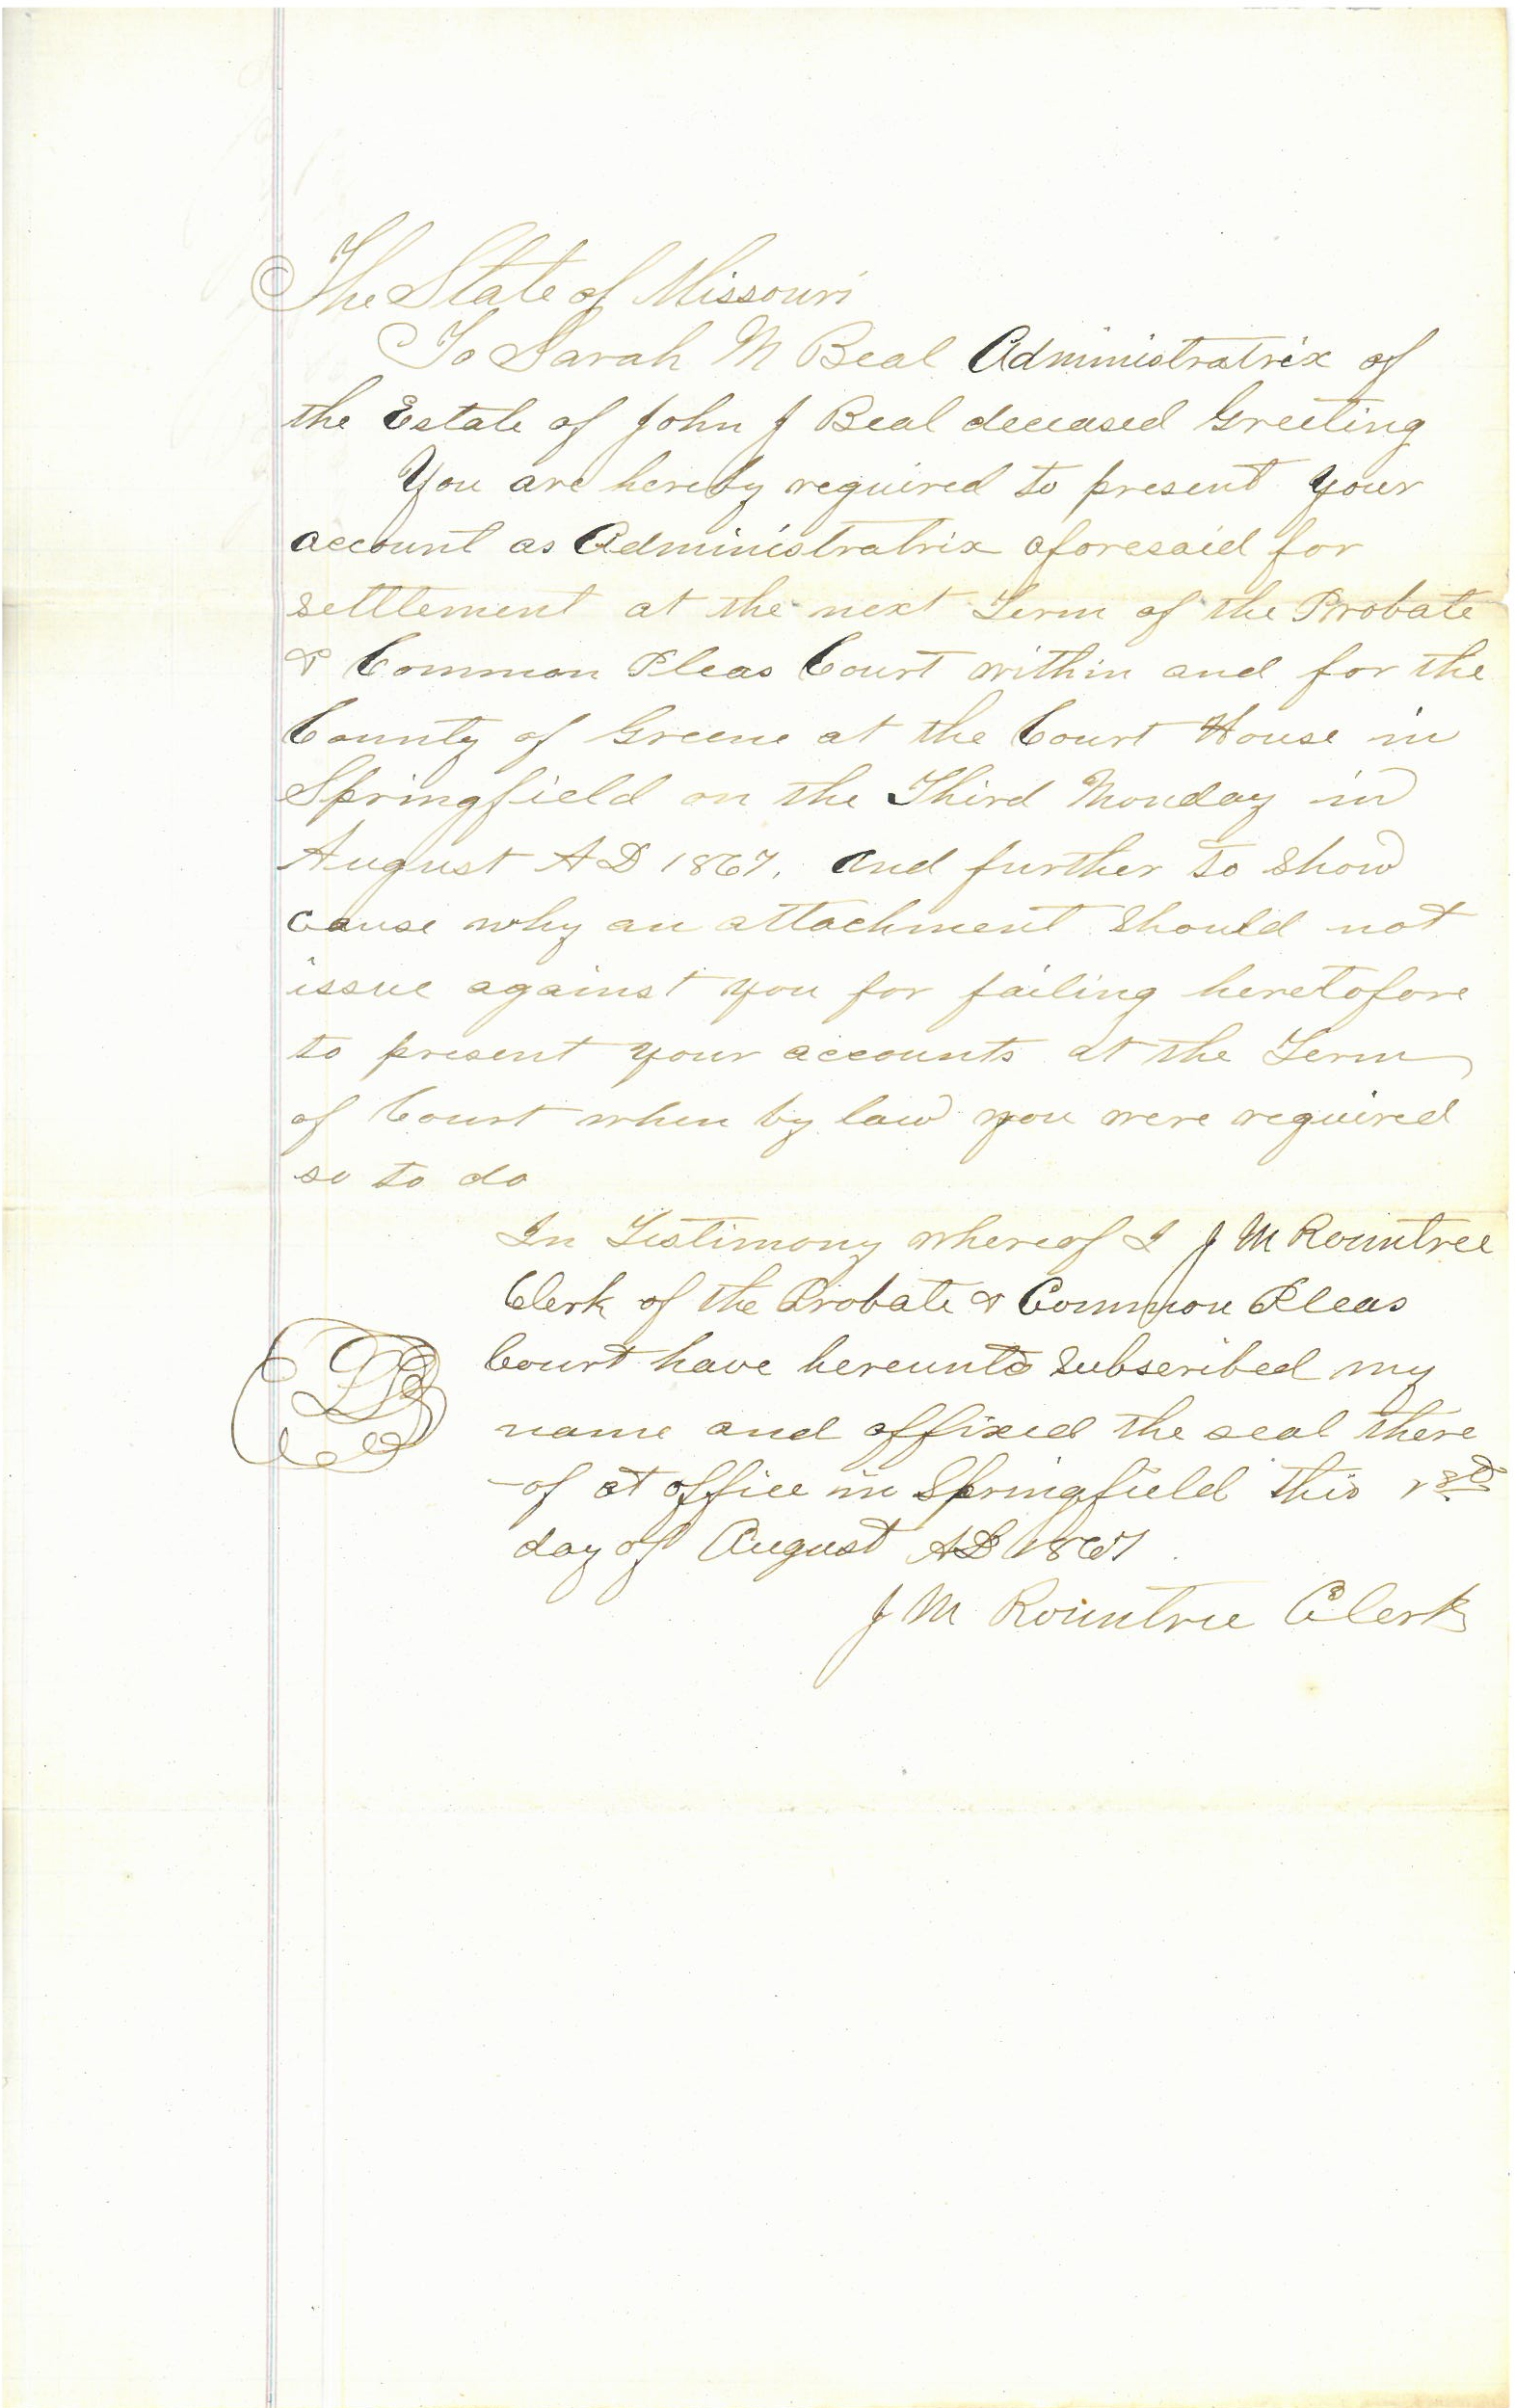 The State of Missouri
To Sarah M Beal Administratrix of
the Estate of John J Beal deceased Greeting
You are hereby required to present your
account as Administratrix aforesaid for
settlement at the next Term of the Probate
& Common Pleas Court within and for the
County of Greene at the Court House in
Springfield on the Third Monday in
August AD 1867. and further to show
cause why an attachment should not
issue against you for failing heretofore
to present your accounts at the Term
of Court when by law you were required
so to do
In Testimony whereof I J M Rountree
Clerk of the Probate & Common Pleas
Court have hereunto subscribed my
name and affixed the seal there
-of at office in Springfield this
day of August AD 1867
J M Rountree Clerk